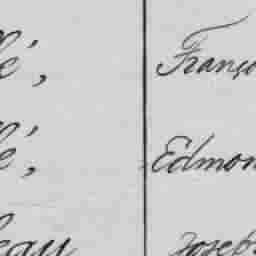 é, Franço
é, Edmon
eau Joseph